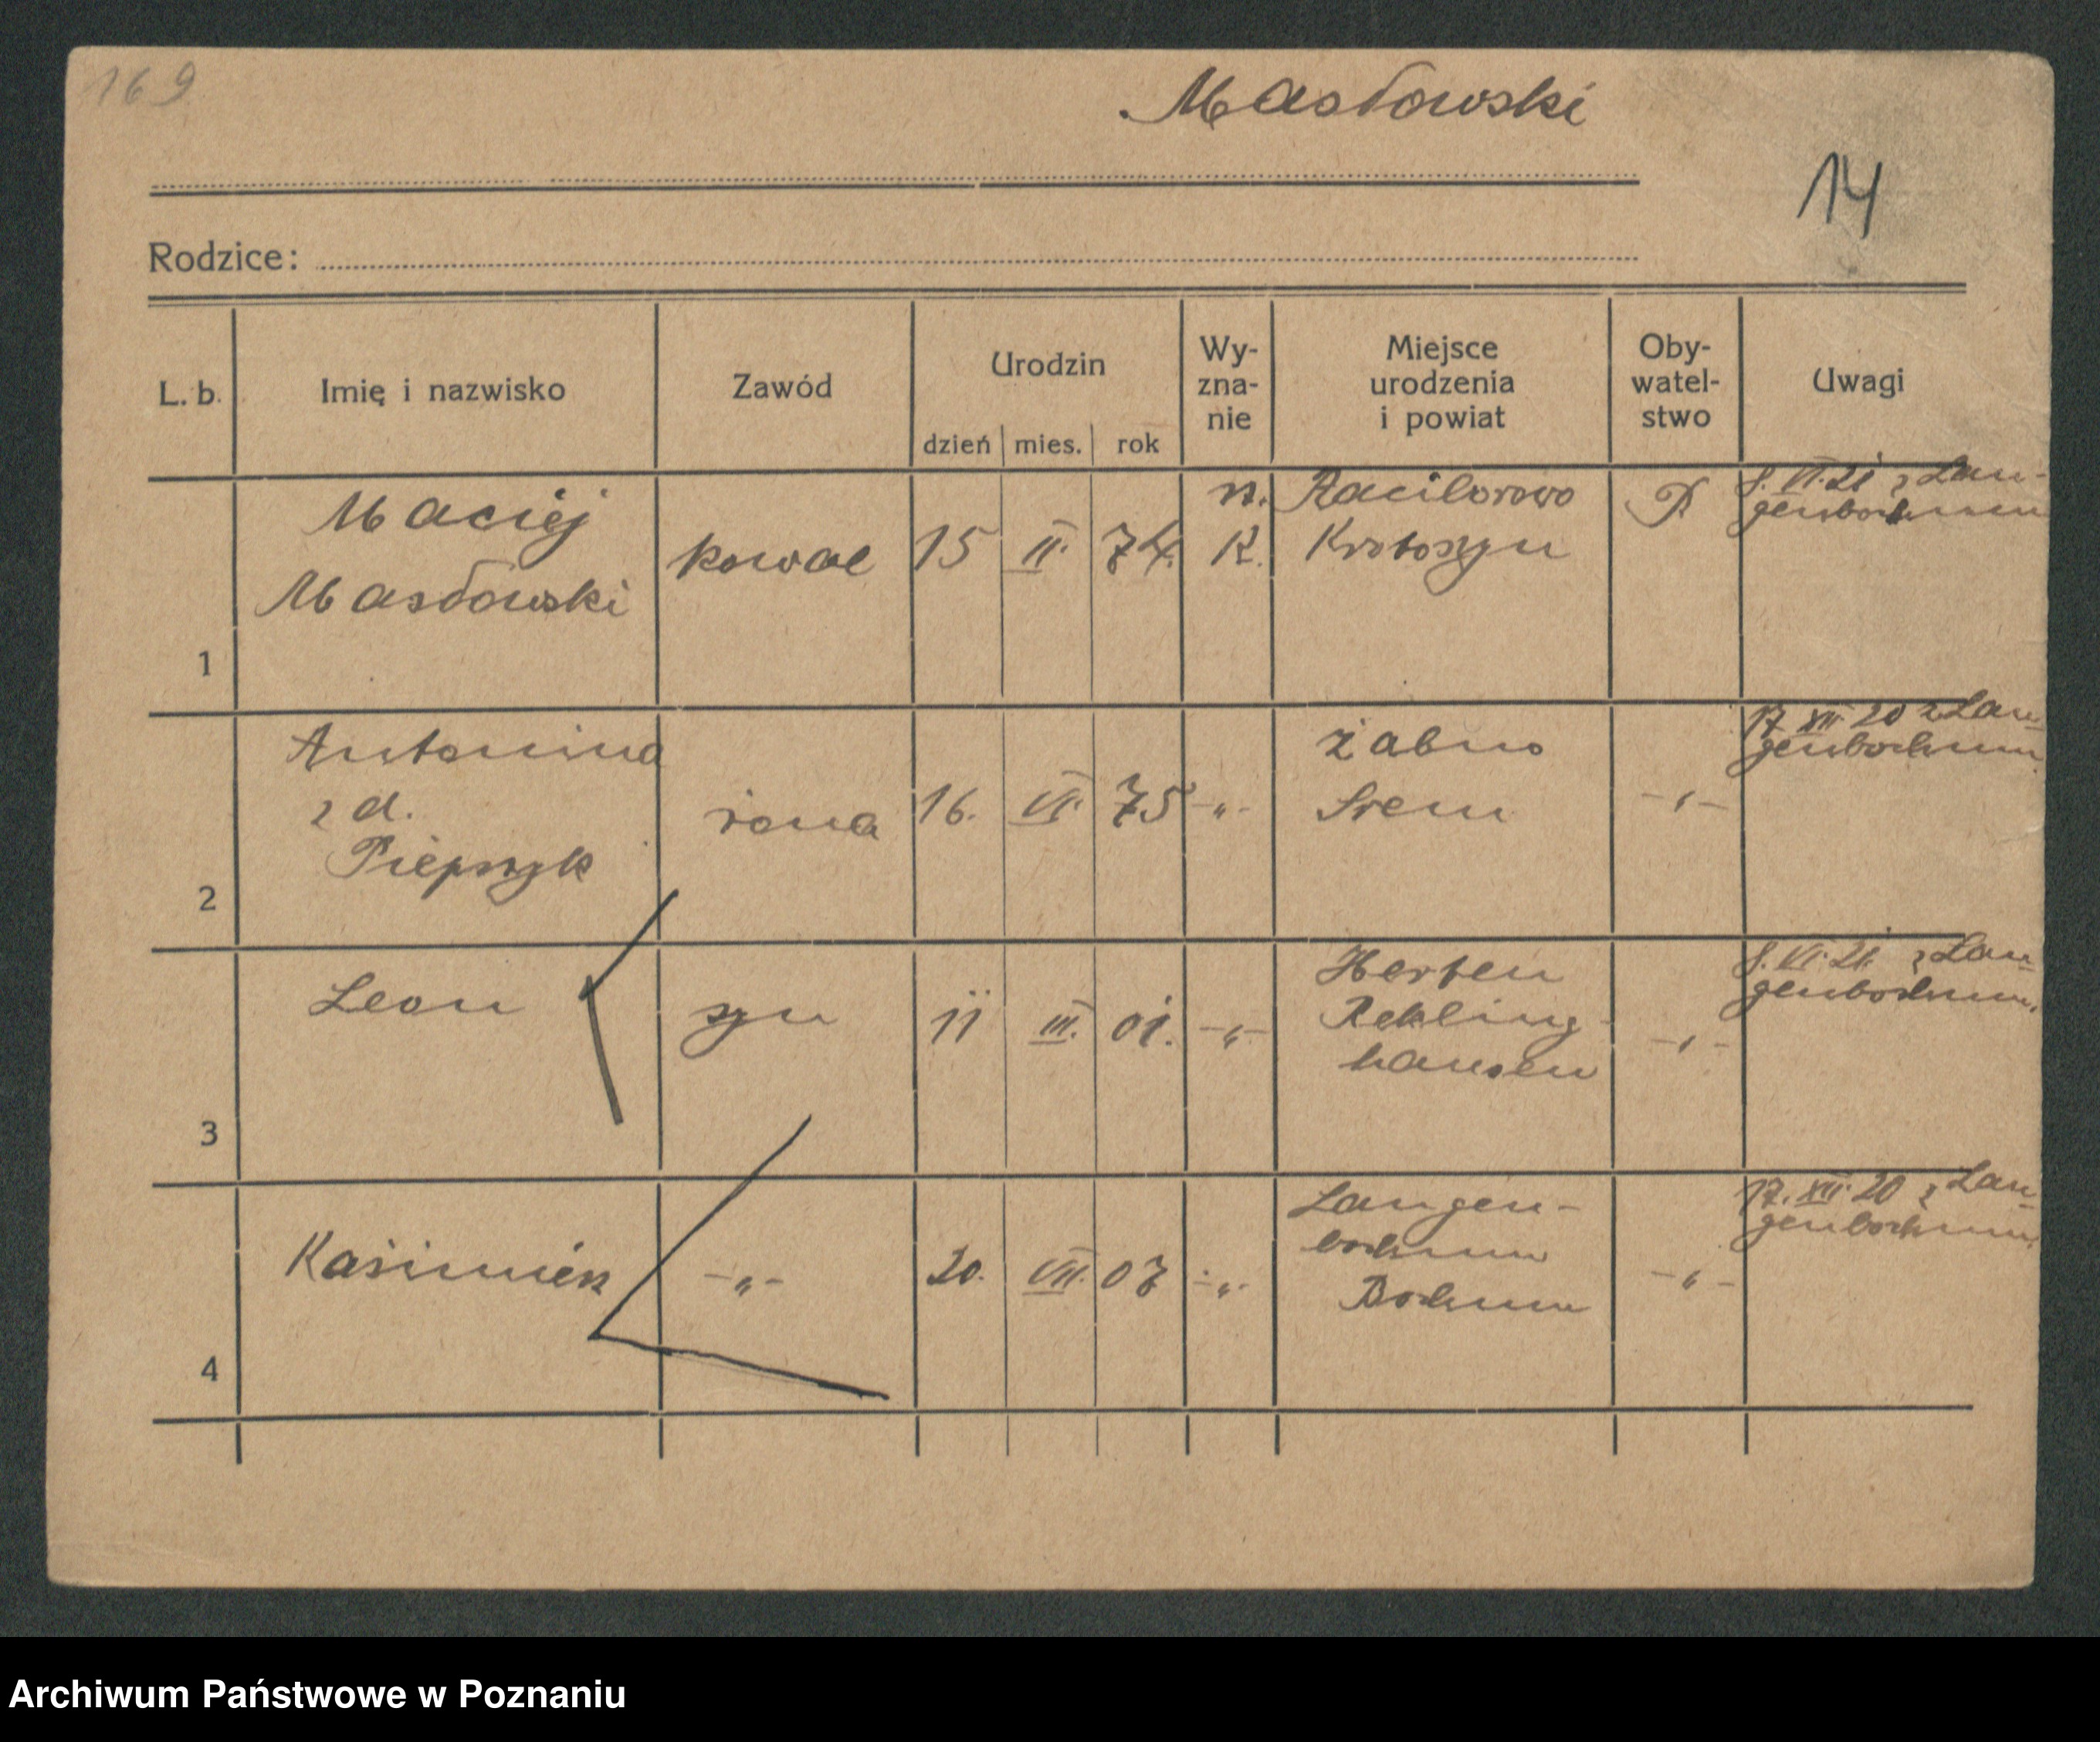 169
Masłowski
14
Rodzice:
L. b.
Imię i nazwisko
Zawód
Urodzin
dzień
mies.
rok
Wy-
zna-
nie
Miejsce
urodzenia
i powiat
Oby-
watel-
stwo
Uwagi
1
Maciej
Masłowski
kowal
15
II.
74.
K.
Krotoszyn
P
8. VI. 21 z Lan-
genbochum
2
Antonina
z d.
Piepszyk
żona
16.
VI.
75
-„-
żabno
Srem
-„-
17. XII. 20 z Lan-
genbochum
3
Leon
syn
11
III.
01.
-„-
Herten
Rekling-
hausen
-„-
8. VI. 21. z Lan-
genbochum.
4
Kaźimierz
-„-
20.
VII.
07
-„-
Langen-
bochum
Bochum
-„-
17. XII. 20 z Lan-
genbochum.
Archiwum Państwowe w Poznaniu